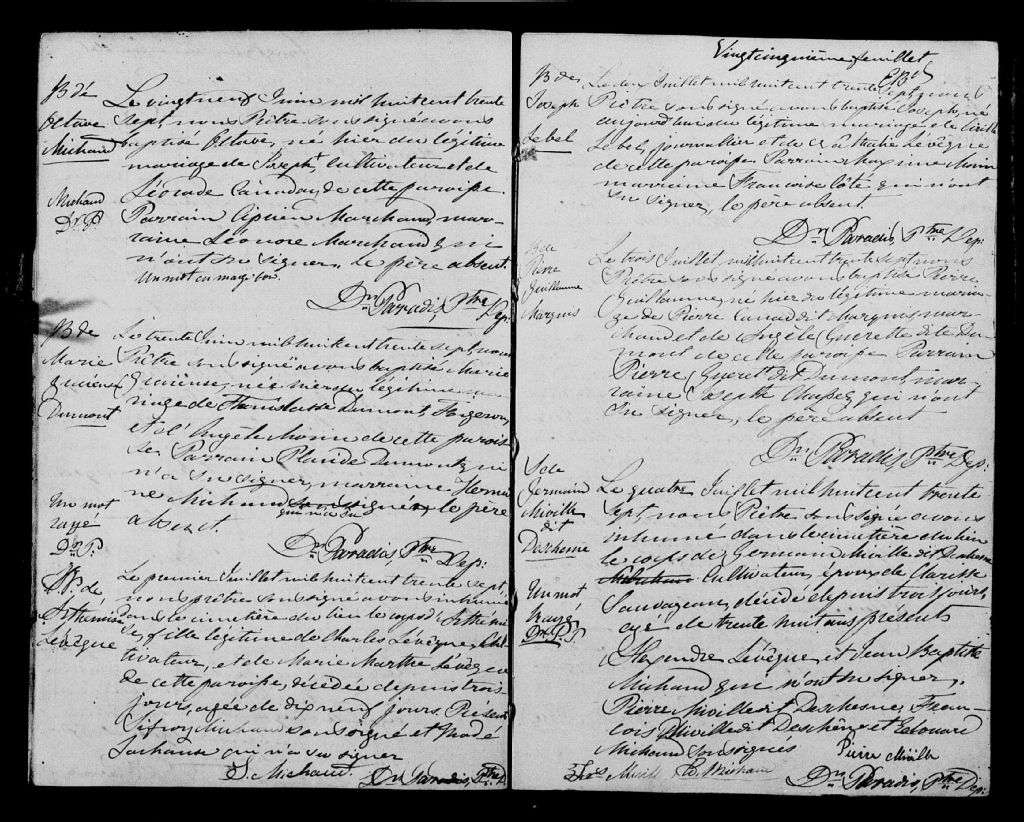 B de
Octave
Michaud
Michaud
Dn P.
Le vingt neuf Juin mil huit cent trente
sept, nous Prêtre soussigné avons
baptisé Octave, né hier du légitime
mariage de Joseph, Cultivateur et de
Léocade Canada, de cette paroisse.
Parrain Ciprien Marchand, mar-
raine Léonore Marchand qui
n'ont su signer, le père absent.
Un mot en marge bon.
Dn Paradis, Ptre Dep:
B de
Marie
Dumont
Un mot
rayé
Dn P.
Le trente Juin mil huit cent trente sept, nous
Prêtre soussigné avons baptisé Marie
née hier du légitime ma-
riage de Stanislasse Dumont, Forgeron,
et d'Angèle Morin de cette parois-
se. Parrain Placide Dumont qui
n'a su signer, marraine Hermi-
ne Michaud soussignée le père
absent.
Dn Paradis, Ptre Dep:
S. de
Arthémise
Levêque
Le premier Juillet mil huit cent trente sept,
nous prêtre soussigné avons inhumé
dans le cimetière du lieu le corps d'Arthémi-
se, fille légitime de Charles Levêque, Cul-
tivateur, et de Marie Marthe Levêque
de cette paroisse, décédée depuis trois
jours, agée de dix neuf jours. Présens
Sifroy Michaud soussigné et
qui n'a su signer
S. Michaud. Dn Paradis, Ptre D.
Vingt cinquième feuillet
B de
Joseph
Lebel
Le deux Juillet mil huit cent trente sept nous
Prêtre soussigné avons baptisé Joseph, né
aujourd'hui du légitime mariage de
Lebel, journallier et de Levêque
de cette paroisse. Parrain Maxime Morin
marraine Francoise Côté qui n'ont
su signer, le père absent.
Dn Paradis, Ptre Dep:
B de
Pierre
Guillaume
Marquis
Le trois Juillet mil huit cent trente sept nous
Prêtre soussigné avons baptisé Pierre
Guillaume, né hier du légitime maria-
ge de Pierre Canac dit Marquis, mar-
chand et de Angèle Guerette dite Du-
mont de cette paroisse Parrain
Pierre Gueret dit Dumont, mar-
raine Josepth Chapes qui n'ont
su signer, le père absent
Dn Paradis, Ptre Dep:
S de
Germain
Miville
dit
Deschesne
Un mot
rayé
Dn P. P.
Le quatre Juillet mil huit cent trente
sept, nous Prêtre soussigné avons
inhumé dans le cimetière du lieu
le corps de Germain Miville dit Deschesne
Cultivateur, époux de Clarisse
Sauvageau, décédé depuis trois jours,
agé de trente huit ans présents
Alexendre Levêque et Jean Baptiste
Michaud qui n'ont su signer,
Pierre Miville dit Deschesnes, Fran-
cois Miville dit Deschêne et Edouard
Michaud soussignés Pierre Miville
Frs Miville E. Michaud
Dn Paradis, Ptre Dep: